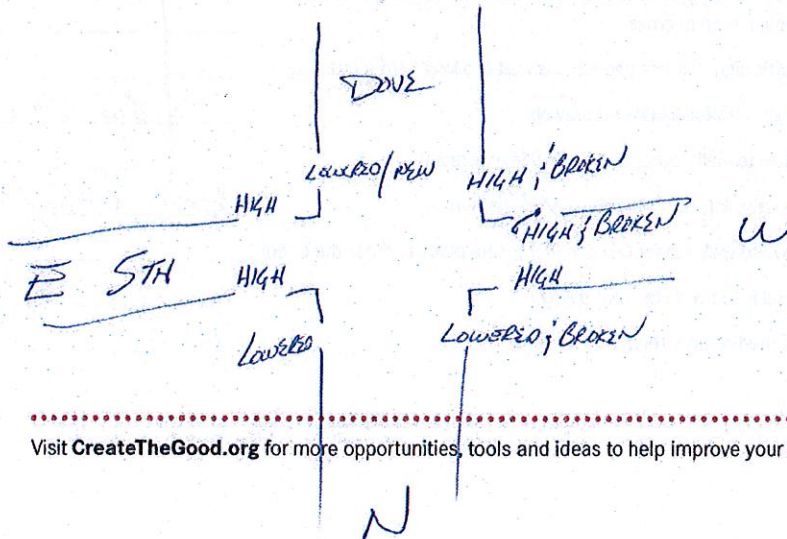 DOVE
LOWERED/NEW HIGH & BROKEN
HIGH HIGH & BROKEN W
E 5TH HIGH HIGH
LOWERED LOWERED & BROKEN
Visit CreateTheGood.org for more opportunities, tools and ideas to help improve your
N